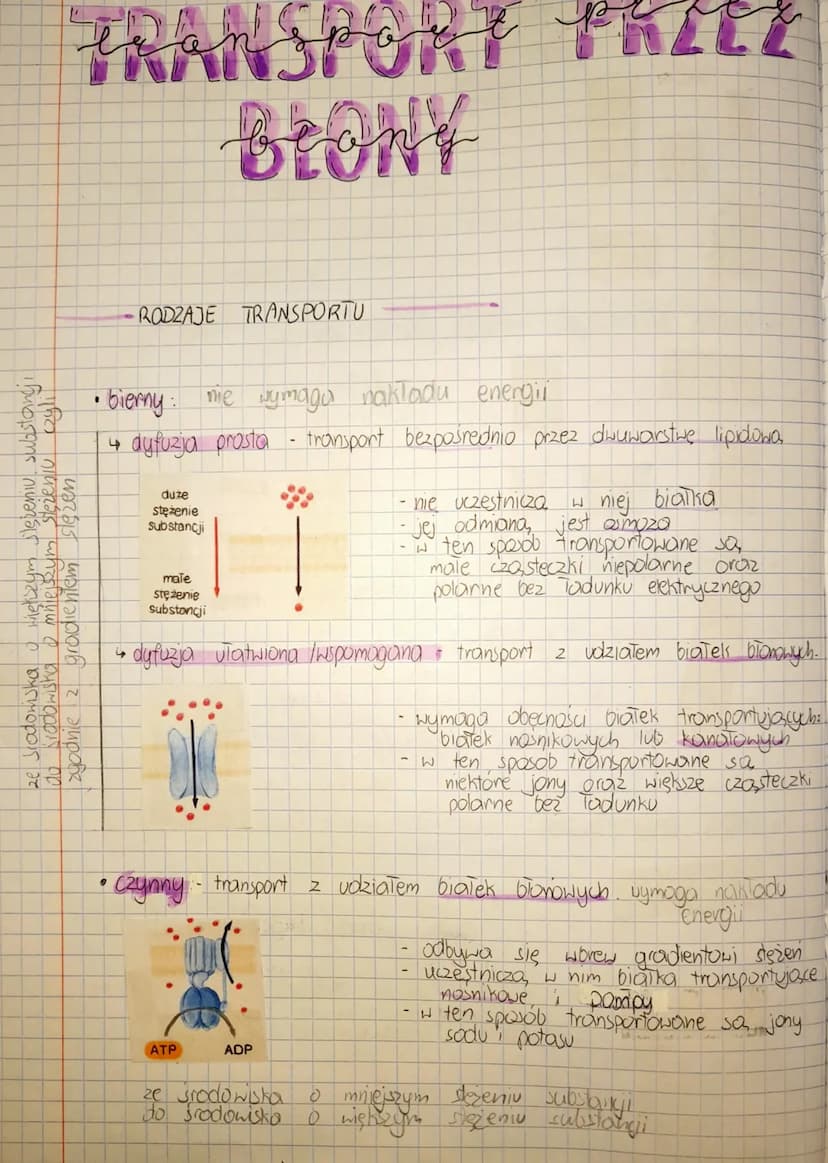 TRANSPORT PRZEZ
transport przez
BŁONY
błony
RODZAJE TRANSPORTU
• bierny: nie wymaga nakładu energii
↳ dyfuzja prosta - transport bezpośrednio przez dwuwarstwę lipidową
duże
stężenie
substancji
małe
stężenie
substancji
- nie uczestniczą w niej białka
- jej odmianą jest osmoza
- w ten sposób transportowane są
małe cząsteczki niepolarne oraz
polarne bez ładunku elektrycznego
↳ dyfuzja ułatwiona /wspomagana - transport z udziałem białek błonowych.
- wymaga obecności białek transportujących:
białek nośnikowych lub kanałowych
- w ten sposób transportowane są
niektóre jony oraz większe cząsteczki
polarne bez ładunku
ze środowiska o większym stężeniu substancji
do środowiska o mniejszym stężeniu czyli
zgodnie z gradientem stężeń
• czynny - transport z udziałem białek błonowych. wymaga nakładu
energii
- odbywa się wbrew gradientowi stężeń
- uczestniczą w nim białka transportujące
nośnikowe i pompy
- w ten sposób transportowane są jony
sodu i potasu
ATP
ADP
ze środowiska o mniejszym stężeniu substancji
do środowiska o większym stężeniu substancji